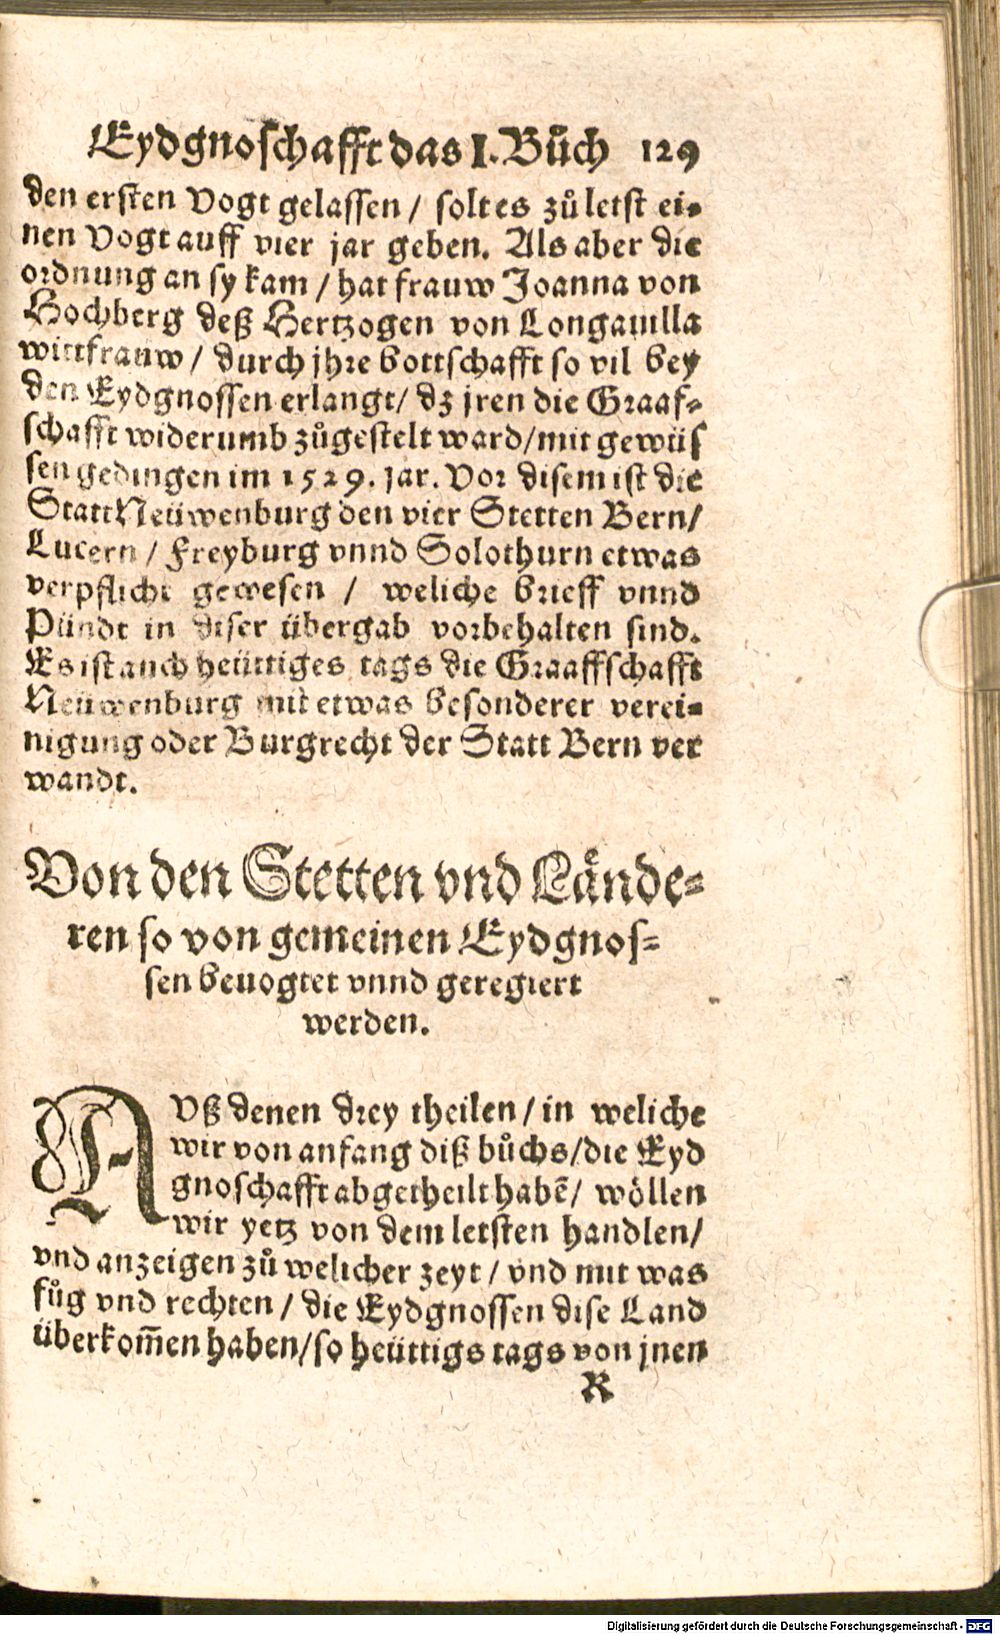 Eydgnoschafft das I. Bůch 129
den ersten Vogt gelassen / solt es zů letst ei-
nen Vogt auff vier jar geben. Als aber die
ordnung an sy kam / hat frauw Joanna von
Hochberg deß Hertzogen von Longauilla
wittfrauw / durch jhre bottschafft so vil bey
den Eydgnossen erlangt / dz jren die Graaf-
schafft widerumb zůgestelt ward / mit gewüs
sen gedingen im 1529. jar. Vor disem ist die
Statt Neüwenburg den vier Stetten Bern /
Lucern / Freyburg vnnd Solothurn etwas
verpflicht gewesen / weliche brieff vnnd
Pündt in diser übergab vorbehalten sind.
Es ist auch heüttiges tags die Graaffschafft
Neüwenburg mit etwas besonderer verei-
nigung oder Burgrecht der Statt Bern ver
wandt.
Von den Stetten vnd Lände-
ren so von gemeinen Eydgnos-
sen beuogtet vnnd geregiert
werden.
AVß denen drey theilen / in weliche
wir von anfang diß bůchs / die Eyd
gnoschafft abgetheilt habē / wöllen
wir yetz von dem letsten handlen /
vnd anzeigen zů welicher zeyt / vnd mit was
fůg vnd rechten / die Eydgnossen dise Land
überkom̃en haben / so heüttigs tags von jnen
R
Digitalisierung gefördert durch die Deutsche Forschungsgemeinschaft - DFG